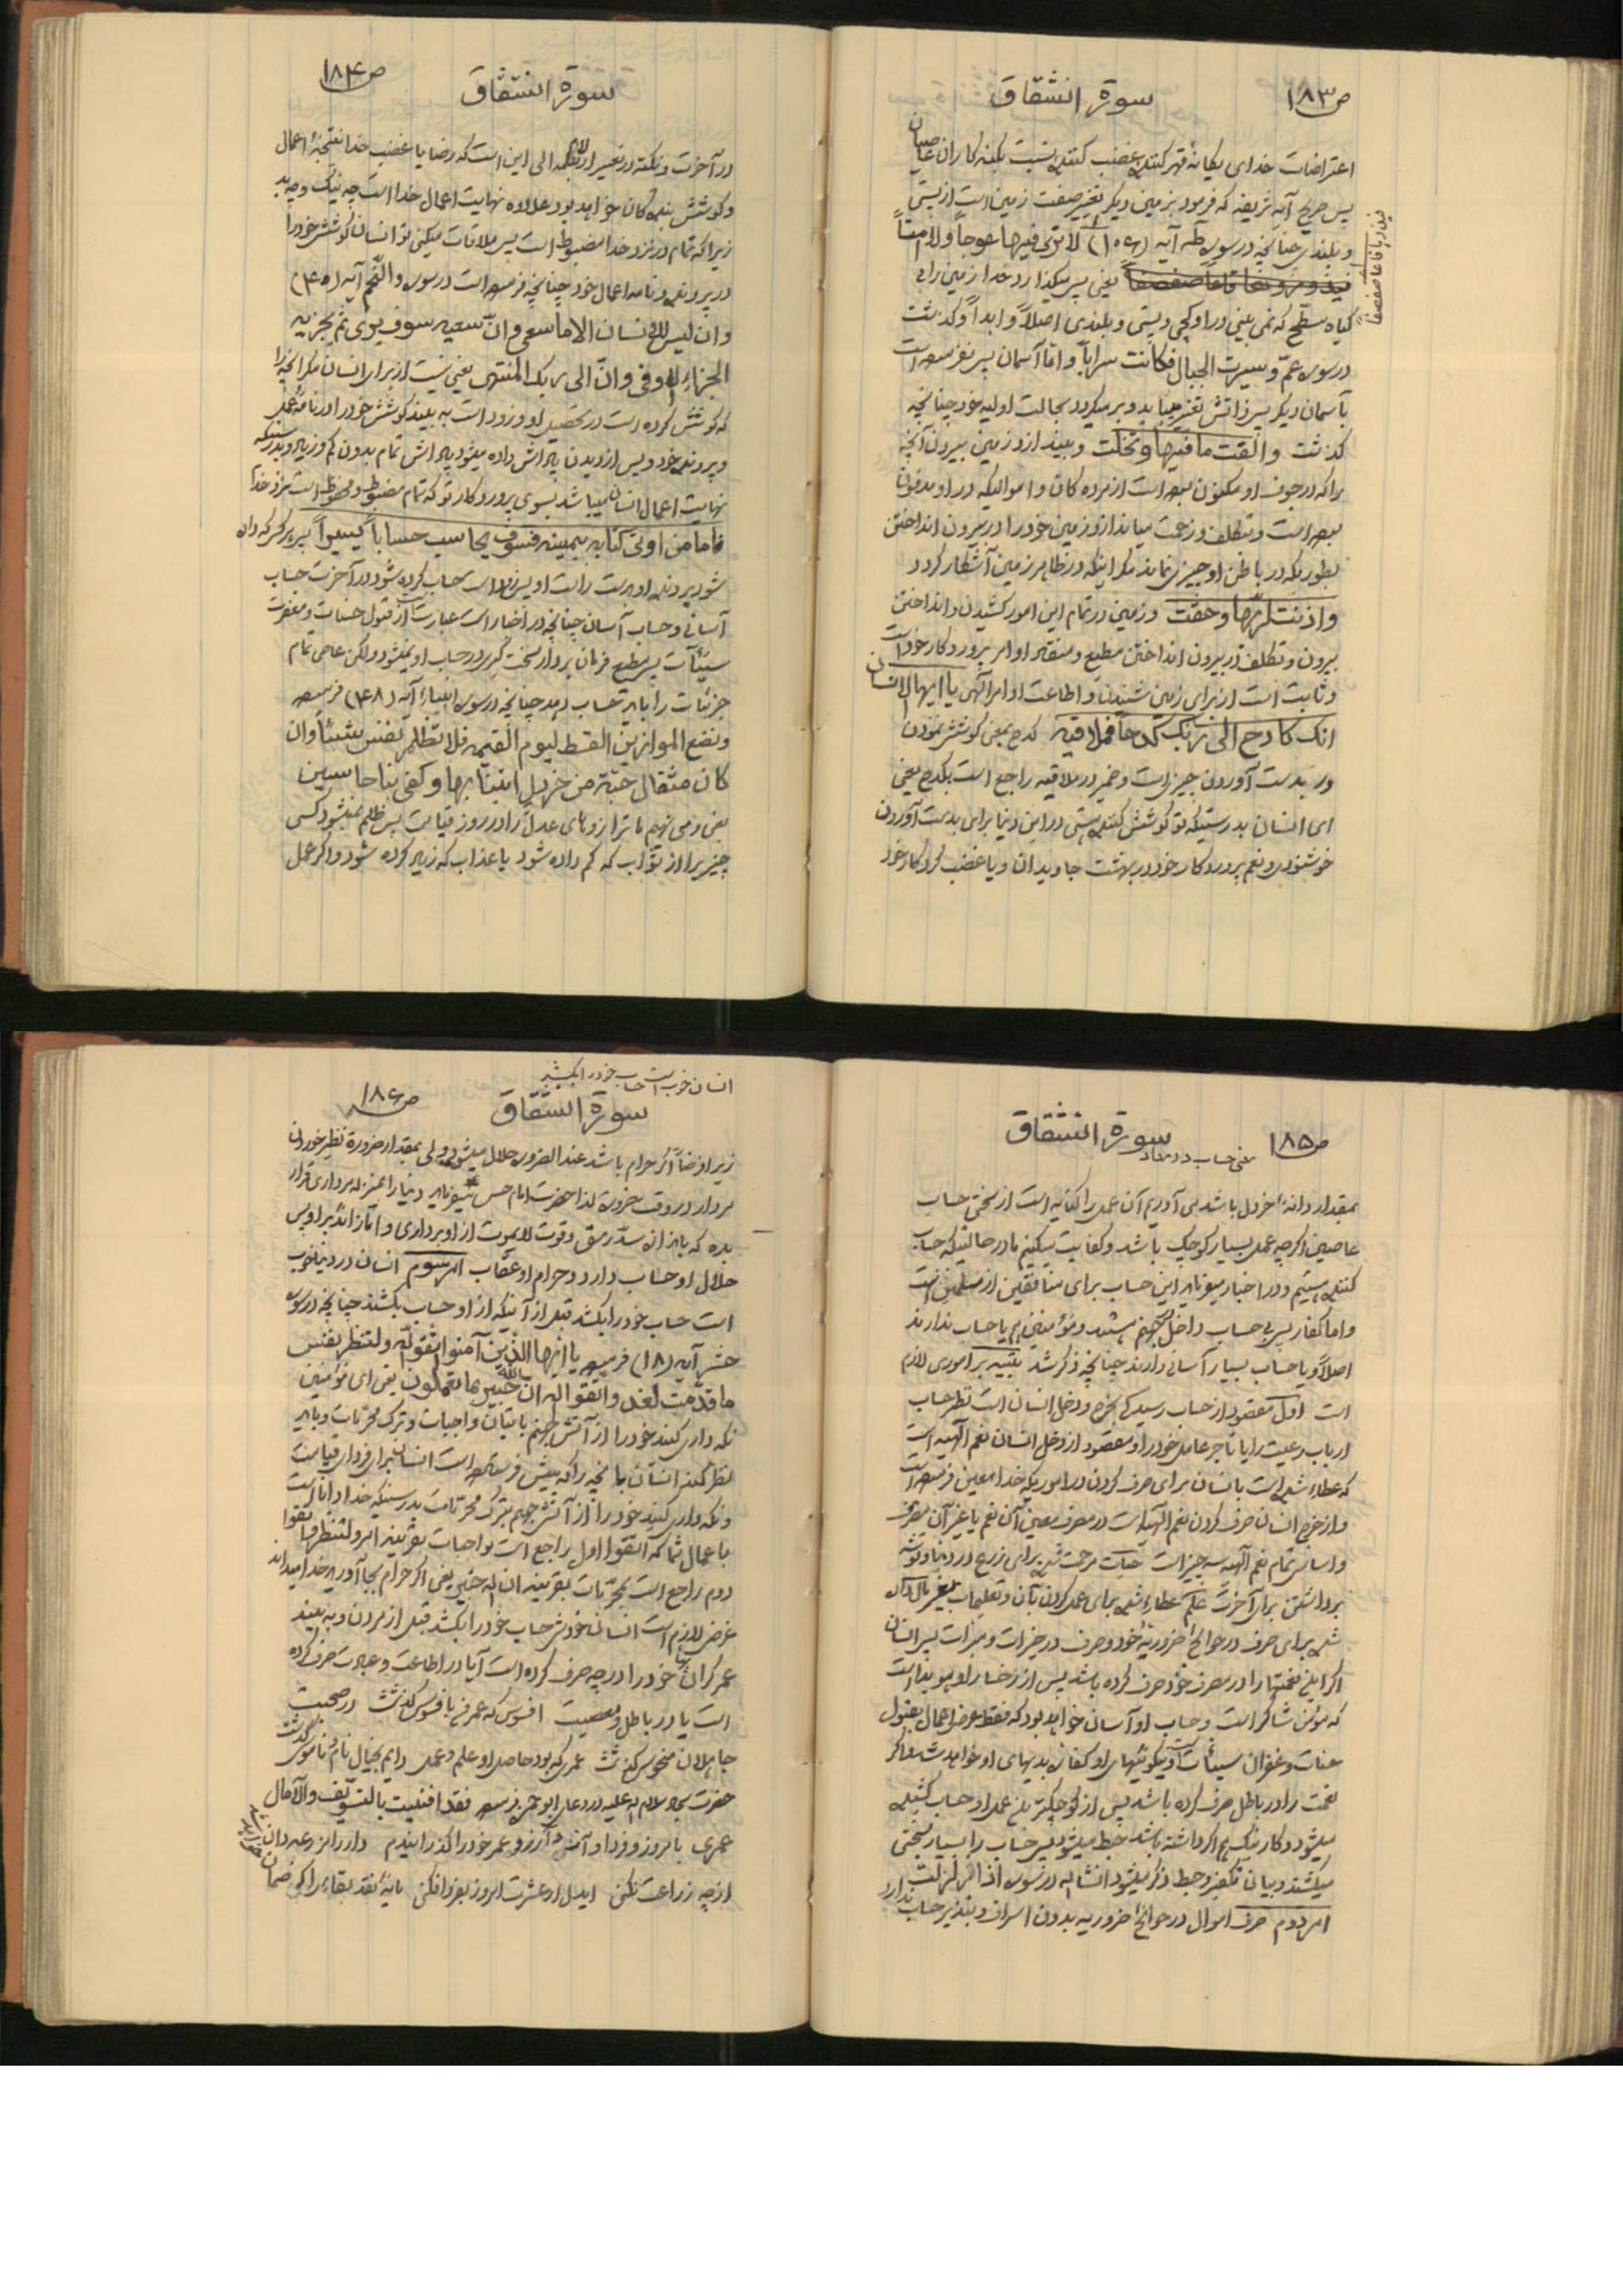 ص۱۸۳
سورة انشقاق
اعتراضات خدای یگانهٔ قهر کننده غضب کننده نسبت بگنه کاران عاصیان
پس صریح آیه شریفه که فرمود بزمین دیگر تغییر صفت زمین است از پستی
و بلندی چنانچه در سوره طه آیه (۱۰۶) لا تری فیها عوجاً ولا امتاً
فیذرها قاعاً صفصفاً
فیذرها قاعاً صفصفاً یعنی پس میگذارد خدا زمین را بی
گیاه مسطح که نمی بینی در او کجی و پستی و بلندی اصلاً و ابداً و گذشت
در سوره عمّ و سیرت الجبال فکانت سراباً و امّا آسمان پس نفرموده است
بآسمان دیگر پس ذاتش تغییر میباید و بر میگردد بحالت اولیه خود چنانچه
گذشت والقت ما فیها وتخلت و بیندازد زمین بیرون آنچه
را که در جوف او مکنون بوده است از مرده گان و اموالیکه در او مدفون
بوده است و تکلف و زحمت میاندازد زمین خود را در بیرون انداختن
بطوریکه در باطن او چیزی نماند مگر اینکه در ظاهر زمین آشکار گردد
واذنت لربها وحقت و زمین در تمام این امور کشیدن و انداختن
بیرون و تکلف در بیرون انداختن مطیع و منقاد اوامر پروردگار خود است
و ثابت است از برای زمین شنیدن و اطاعت اوامر آلهی یا ایها الانسان
انک کادح الی ربک کدحاً فملاقیه کدح بمعنی کوشش نمودن
در بدست آوردن چیز است و ضمیر در ملاقیه راجع است بکدح یعنی
ای انسان بدرستیکه تو کوشش کننده هستی در این دنیا برای بدست آوردن
خوشنودی و نعم پروردگار خود در بهشت جاویدان و یا غضب کردگار خود
ص۱۸۴
سورة انشقاق
در آخرت و نکته در تعبیر از بکلمه الی این است که رضا یا غضب خدا نتیجهٔ اعمال
و کوشش بنده گان خواهد بود علاوه نهایت اعمال خدا است چه نیک و چه بد
زیرا که تمام در نزد خدا مضبوط است پس ملاقات میکنی تو انسان کوشش خود را
در پرونده و نامه اعمال خود چنانچه فرموده است در سوره والنّجم آیه (۴۰)
وان لیس للانسان الا ما سعی وانّ سعیه سوف یری ثمّ یجزیه
الجزاء الاوفی وانّ الی ربک المنتهی یعنی نیست از برای انسان مگر آنچه را
که کوشش کرده است در تحصیل او و زود است به بیند کوشش خود را در نامهٔ عمل
و پرونده خود و پس از دیدن پاداش داده میشود پاداش تمام بدون کم و زیاد و بدرستیکه
نهایت اعمال انسان میباشد بسوی پروردگار تو که تمام مضبوط و محفوظ است نزد خدا
فاما من اوتی کتابه بیمینه فسوف یحاسب حساباً یسیراً پس هر کس که داده
شود پرونده او بدست راست او پس زود است حساب کرده شود در آخرت حساب
آسانی و حساب آسان چنانچه در اخبار است عبارت است از قبول حسنات و مغفرت
سیّئات پس مطیع فرمان بردار سخت گیری در حساب او نمیشود ولکن عاصی تمام
جزئیات را باید حساب دهد چنانچه در سوره انبیاء آیه (۴۸) فرموده
ونضع الموازین القسط لیوم القیمه فلا تظلم نفس شیئاً وان
کان مثقال حبّة من خردل اتینا بها وکفی بنا حاسبین
یعنی و می نهیم ما ترازوهای عدل را در روز قیامت پس ظلم نمیشود کسی
چیزیرا از ثواب که کم داده شود یا عذاب که زیاد کرده شود و اگر عمل
ص۱۸۵
سورة انشقاق
معنی حساب در معاد
بمقدار دانهٔ خردل باشد می آوریم آن عمل را کنایه است از سختی حساب
عاصین اگر چه عمل بسیار کوچک باشد و کفایت میکنیم ما در حالتیکه حساب
کننده هستیم و در اخبار میفرماید این حساب برای منافقین از مسلمین است
و اما کفار پس بی حساب داخل جهنم میشوند و مؤمنین هم یا حساب ندارند
اصلاً و یا حساب بسیار آسانی دارند چنانچه ذکر شد تنبیه بر اموری لازم
است اول مقصود از حساب رسیدگی بخرج و دخل انسان است نظیر حساب
ارباب رعیت را یا تاجر عامل خود را و مقصود از دخل انسان نعم الهیه است
که عطاء شده است بانسان برای صرف کردن در اموریکه خدا معین فرموده است
و از خرج انسان صرف کردن نعم الهیه است در مصرف معین آن نعم یا غیر آن مصرف
و اساس تمام نعم الهیه سه چیز است حیات مرحمت شده برای زرع در دنیا و توشه
برداشتن برای آخرت علم عطاء شده برای عمل کردن بآن و تعلیمات بغیر مال داده
شده برای صرف در حوائج ضروریهٔ خود و صرف در خیرات و مبرات پس انسان
اگر این نعمتها را در مصرف خود صرف کرده باشد پس از رخسار او هویدا است
که مؤمن شاکر است و حساب او آسان خواهد بود که فقط عرض اعمال بقبول
حسنات و غفران سیئات است و نیکوئیهای او کفاره بدیهای او خواهد شد و اگر
نعمت را در باطل صرف کرده باشد پس از کوچکترین عمل او حساب کشیده
میشود و کار نیک هم اگر داشته باشد حبط میشود پس حساب را بسیار بسختی
میکشند و بیان تکفیر و حبط ذکر میشود انشاءاله در سوره اذا زلزلت
امر دوم صرف اموال در حوائج ضروریه بدون اسراف و تبذیر حساب ندارد
انسان خوب است حساب خود را بکشد
ص۱۸۶
سورة انشقاق
زیرا فرضاً اگر حرام باشد عند الضروره حلال میشود ولی بمقدار ضرورة نظیر خوردن
مردار در وقت ضرورة لذا حضرت امام حسن ع میفرماید دنیا را بمنزله مرداری قرار
بده که باندازه سدّ رمق و قوت لا یموت از او برداری
حلال او حساب دارد و حرام او عقاب امر سوم انسان در دنیا خوب
است حساب خود را بکشد قبل از آنیکه از او حساب بکشند چنانچه در سوره
حشر آیه (۱۸) فرموده یا ایها الذین آمنوا اتقوا الله ولتنظر نفس
ما قدّمت لغد واتقوا الله ان الله خبیر بما تعملون یعنی ای مؤمنین
نگه داری کنید خود را از آتش جهنم باتیان واجبات و ترک محرّمات و باید
نظر کند انسان بآنچه را که پیش فرستاده است انسان برای فردای قیامت
و نگه داری کنید خود را از آتش جهنم بترک محرّمات بدرستیکه خدا دانا است
باعمال شما که اتقوا اول راجع است بواجبات بقرینه امر ولتنظر و اتقوا
دوم راجع است بمحرّمات بقرینه ان اله خبیر یعنی اگر حرام بجا آورید خدا میداند
غرض لازم است انسان خودش حساب خود را بکشد قبل از مردن و به بیند
عمر گران بهای خود را در چه صرف کرده است آیا در اطاعت و عبادت صرف کرده
است یا در باطل و معصیت افسوس که عمر بافسوس گذشت در صحبت
جاهلان منحوس گذشت عمری که بود حاصل او علم و عمل دایم بخیال نام و ناموس گذشت
حضرت سجاد سلام اله علیه در دعای ابوحمزه فرموده فقد افنیت بالتسویف والآمال
عمری بامروز و فردا و آرزو عمر خود را گذرانیدم
از چه زراعت نکنی ایدل ار عشرت امروز بفردا فکنی مایهٔ نقد بقا را که ضمان
خواهد شد